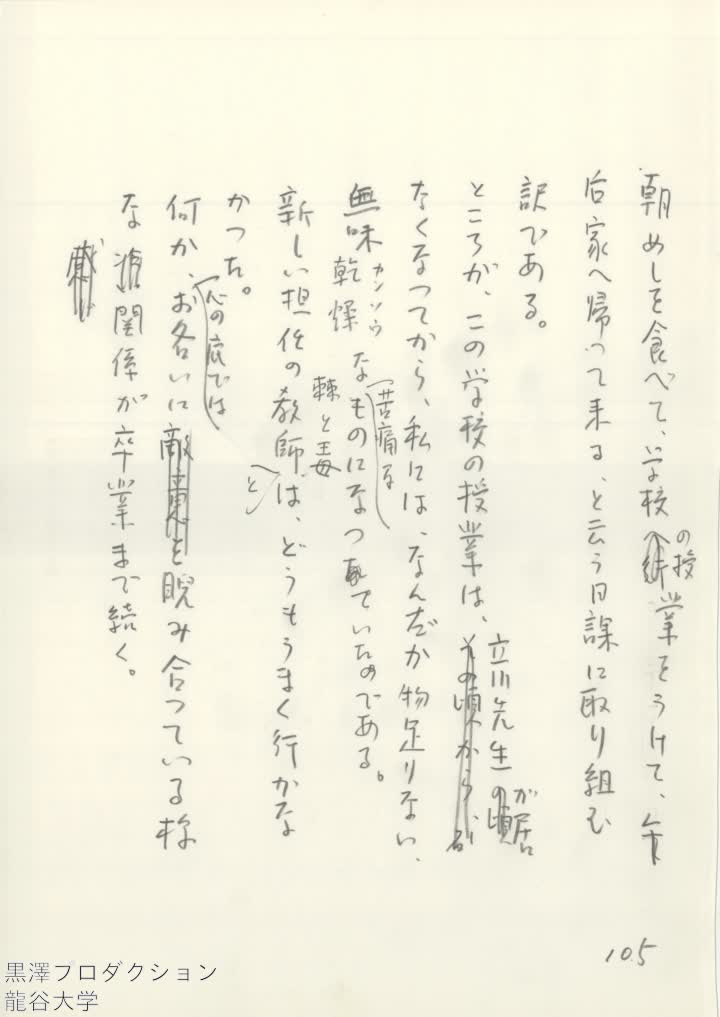 朝めしを食べて、学校の授業をうけて、午
后家へ帰って来る、と云う日課に取り組む
訳である。
ところが、この学校の授業は、立川先生が居
なくなつてから、私には、なんだか物足りない、
無味乾燥カンソウな苦痛なものになつていたのである。
新しい担任の教師とは、どうもうまく行かな
かつた。
何か、お各いに心の底では棘と毒を睨み合つている様
な関係が卒業まで続く。
105
黒澤プロダクション
龍谷大学